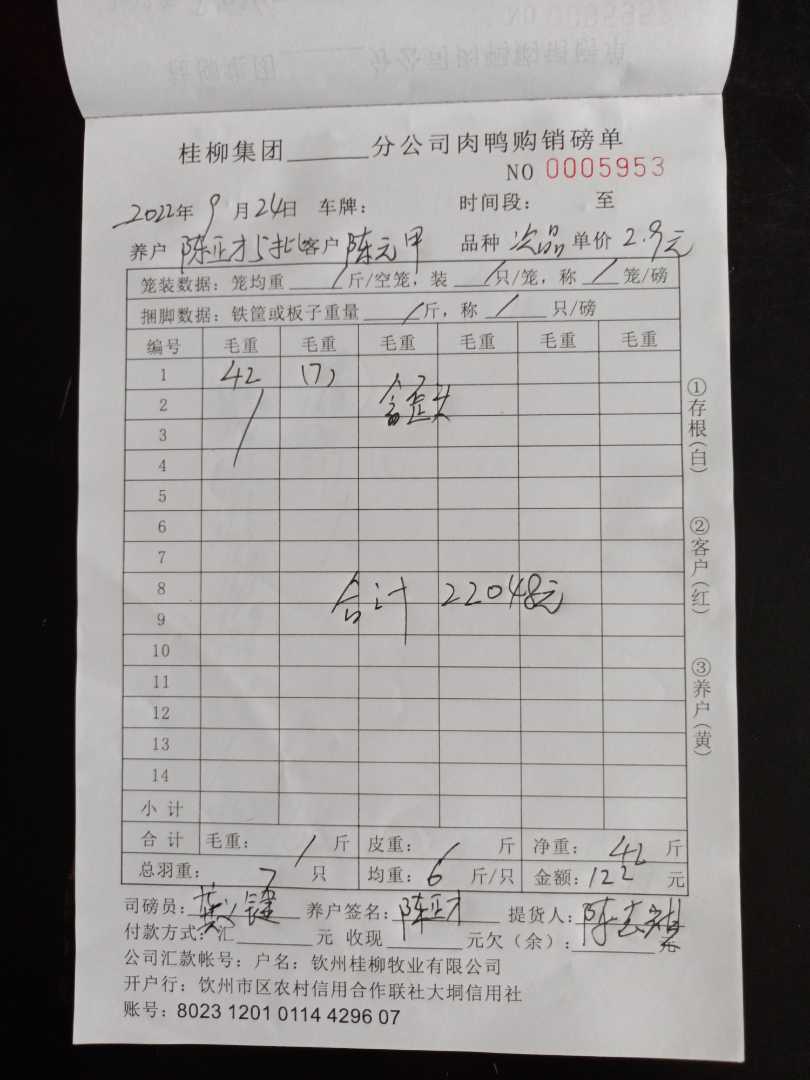 桂柳集团______分公司肉鸭购销磅单
NO 0005953
2022年9月24日 车牌： 时间段： 至
养户 陈正才5批 客户 陈元甲 品种 次品 单价 2.9元
笼装数据：笼均重 / 斤/空笼，装 / 只/笼，称 / 笼/磅
捆脚数据：铁筐或板子重量 / 斤，称 / 只/磅
编号 毛重 毛重 毛重 毛重 毛重 毛重
1 42 (7)
2 含歪头
3
4
5
6
7
8 合计 22048元
9
10
11
12
13
14
小计
合计 毛重： / 斤 皮重： / 斤 净重： 42 斤
总羽重： 7 只 均重： 6 斤/只 金额：122 元
司磅员： 养户签名：陈正才 提货人：
付款方式：汇______元 收现______元欠（余）：______元
公司汇款帐号：户名：钦州桂柳牧业有限公司
开户行：钦州市区农村信用合作联社大垌信用社
账号：8023 1201 0114 4296 07
①存根（白）
②客户（红）
③养户（黄）